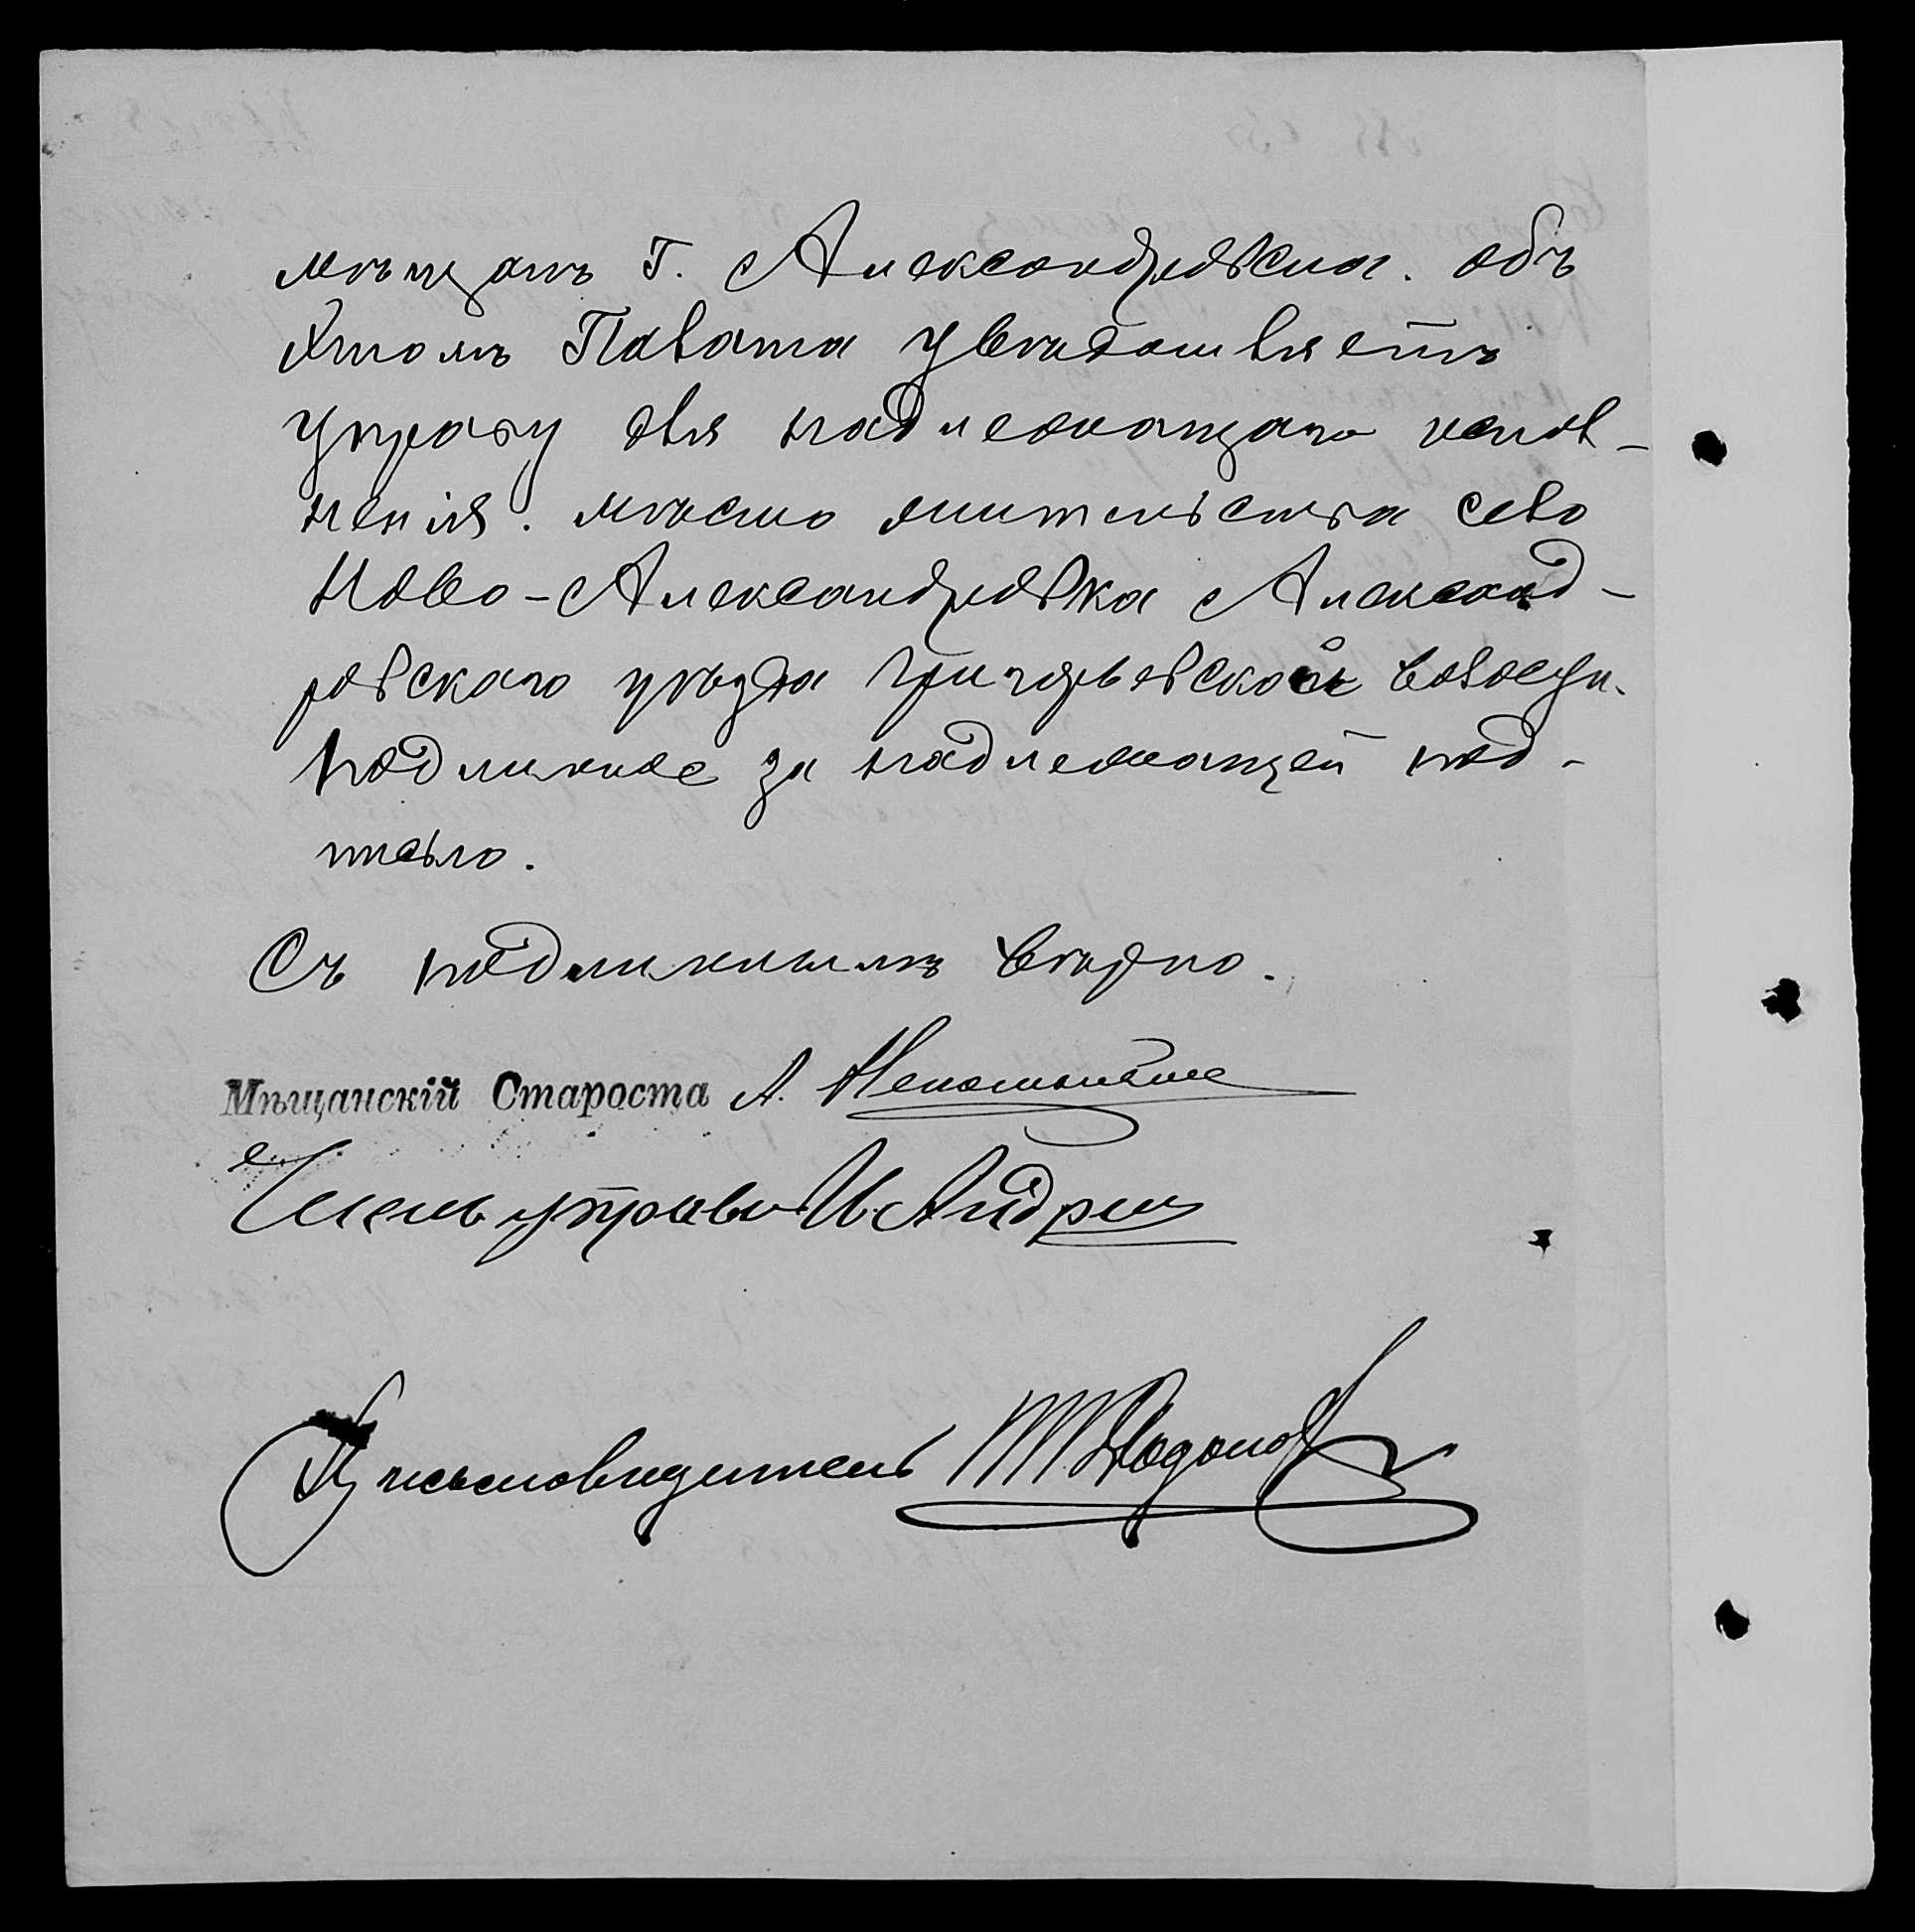 мѣщанъ г. Александровска. объ
этомъ Палата увѣдомляетъ
управу для надлежащаго испол-
ненія. мѣсто жительства село
Ново-Александровка Александ-
ровскаго уѣзда Григорьевской волости.
Подлинное за надлежащей под-
писью.
Съ подлиннымъ вѣрно.
Мѣщанскій Староста А.
Членъ управы И. Андрющ
Письмоводитель